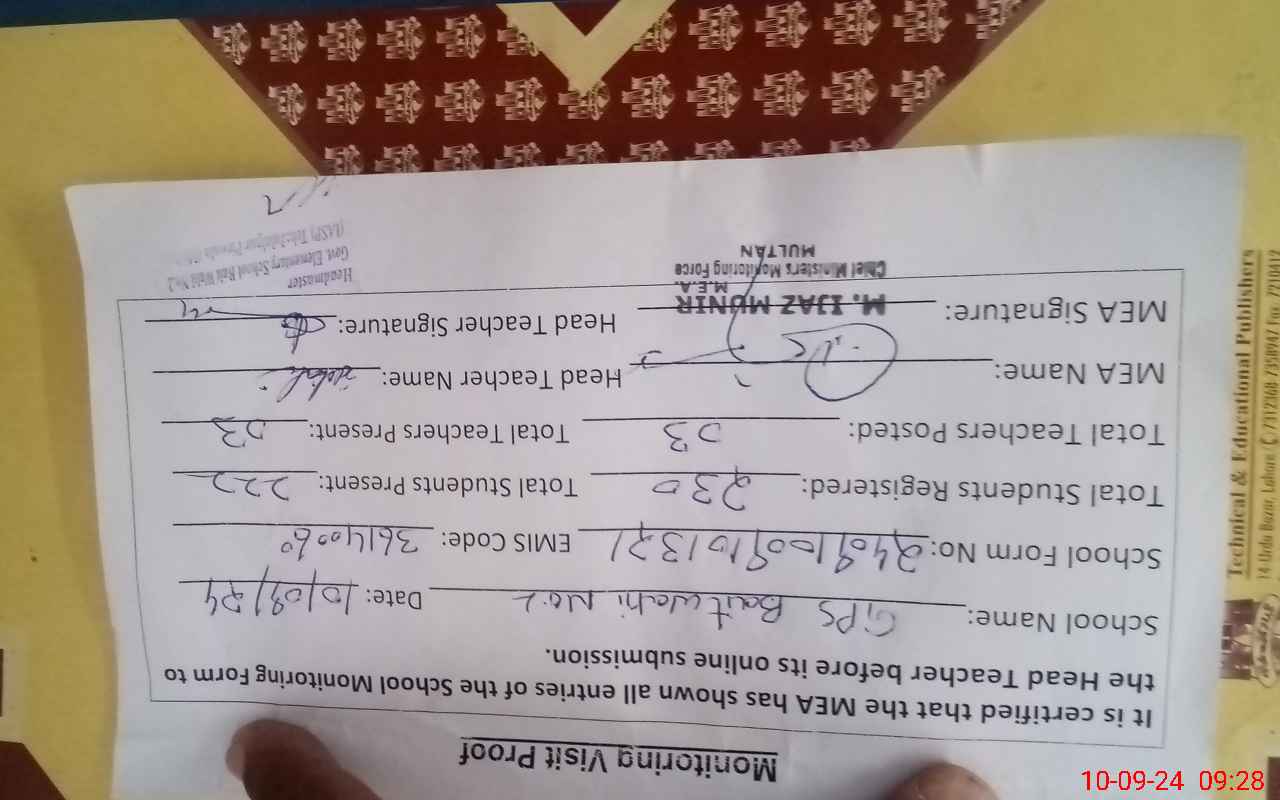 Monitoring Visit Proof
It is certified that the MEA has shown all entries of the School Monitoring Form to
the Head Teacher before its online submission.
School Name: GPS Bait wahi No.2 Date: 10/09/24
School Form No: EMIS Code:
Total Students Registered: 230 Total Students Present: 222
Total Teachers Posted: 03 Total Teachers Present: 03
MEA Name: Head Teacher Name:
MEA Signature: Head Teacher Signature:
M. IJAZ MUNIR
M.E.A.
Chief Minister's Monitoring Force
MULTAN
Headmaster
Govt. Elementary School No.2
Technical & Educational Publishers
14-Urdu Bazar, Lahore.
10-09-24 09:28